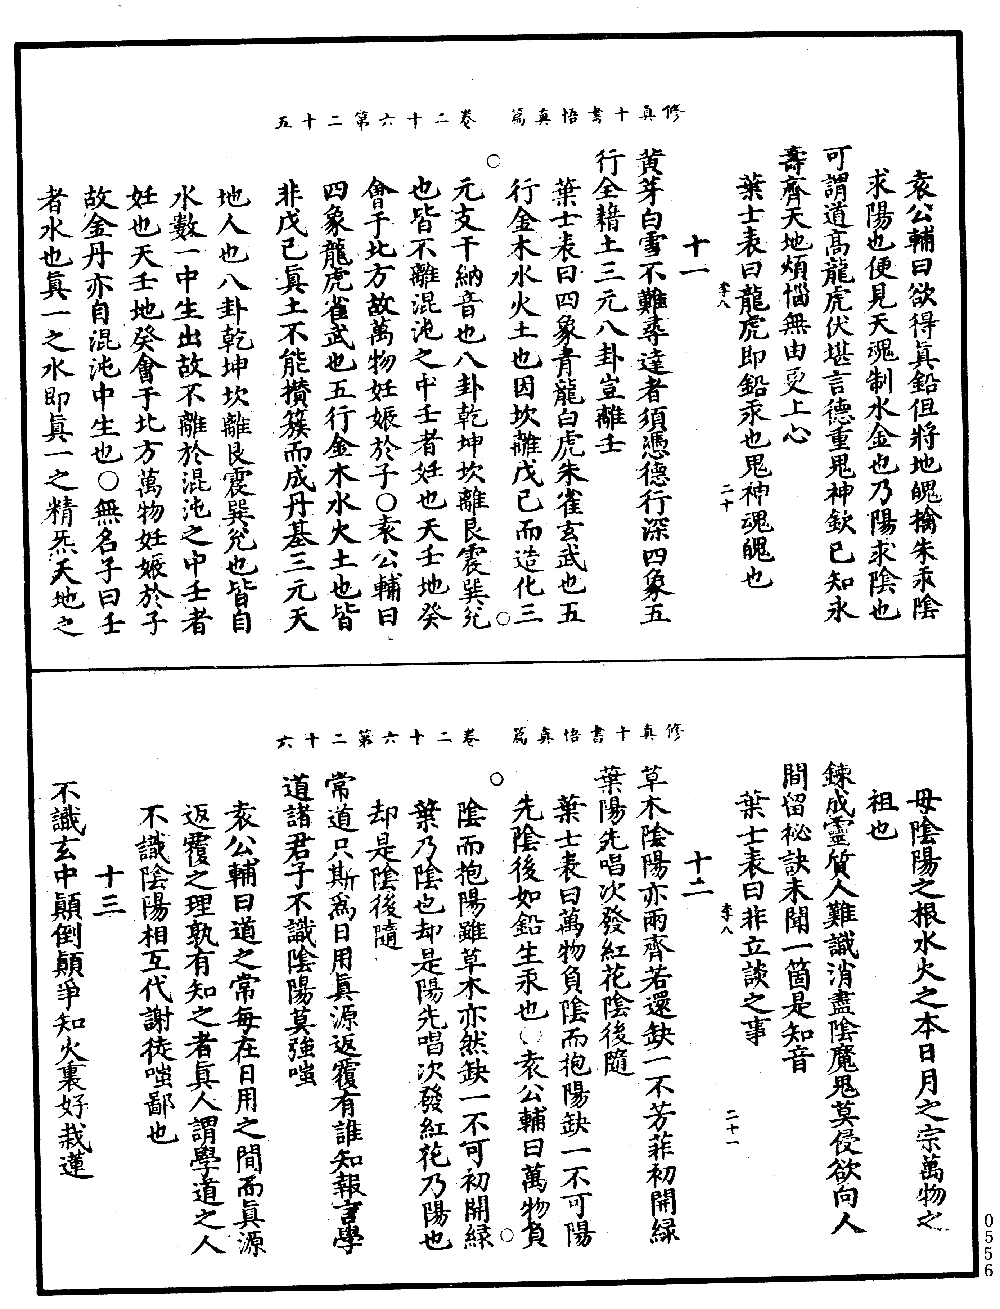 修真十書悟眞篇　卷二十六第二十五
袁公輔曰欲得眞鉛但將地魄擒朱汞陰
求陽也便見天魂制水金也乃陽求陰也
可謂道高龍虎伏堪言德重鬼神欽已知永
壽齊天地煩惱無由更上心
葉士表曰龍虎即鉛汞也鬼神魂魄也
李八　二十
十一
黃芽白雪不難尋達者須憑德行深四象五
行全藉土三元八卦豈離壬
葉士表曰四象青龍白虎朱雀玄武也五
行金木水火土也因坎離戊己而造化三
元支干納音也八卦乾坤坎離艮震巽兌
也皆不離混沌之中壬者妊也天壬地癸
會于北方故萬物妊娠於子○袁公輔曰
四象龍虎雀武也五行金木水火土也皆
非戊己眞土不能攢簇而成丹基三元天
地人也八卦乾坤坎離艮震巽兌也皆自
水數一中生出故不離於混沌之中壬者
妊也天壬地癸會于北方萬物妊娠於子
故金丹亦自混沌中生也○無名子曰壬
者水也眞一之水即眞一之精炁天地之
修真十書悟眞篇　卷二十六第二十六
母陰陽之根水火之本日月之宗萬物之
祖也
鍊成靈質人難識消盡陰魔鬼莫侵欲向人
間留秘訣未聞一箇是知音
葉士表曰非立談之事
李八　二十一
十二
草木陰陽亦兩齊若還缺一不芳菲初開緑
葉陽先唱次發紅花陰後隨
葉士表曰萬物負陰而抱陽缺一不可陽
先陰後如鉛生汞也○袁公輔曰萬物負
陰而抱陽雖草木亦然缺一不可初開緑
葉乃陰也却是陽先唱次發紅花乃陽也
却是陰後隨
常道只斯爲日用眞源返覆有誰知報言學
道諸君子不識陰陽莫強嗤
袁公輔曰道之常每在日用之間而眞源
返覆之理孰有知之者眞人謂學道之人
不識陰陽相互代謝徒嗤鄙也
十三
不識玄中顛倒顛爭知火裏好栽蓮
0556